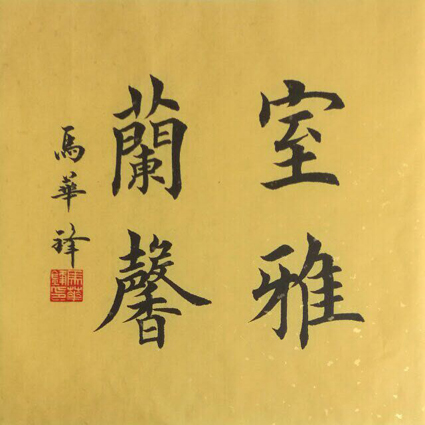 室雅
蘭馨
馬華鋒